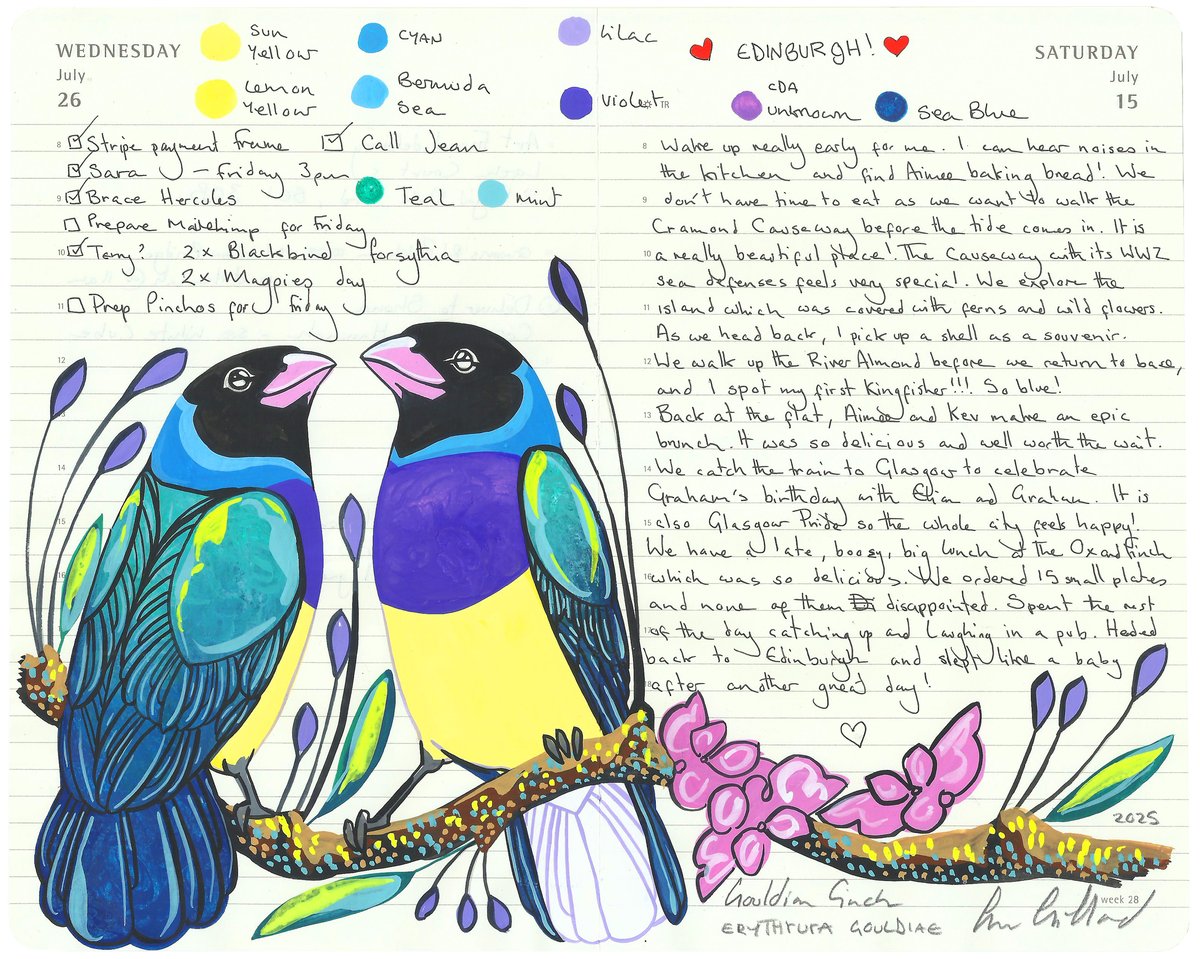 WEDNESDAY
July
26
Sun
Yellow
Lemon
Yellow
CYAN
Bermuda
Sea
Lilac
Violet TR
8 Stripe payment frame
Call Jean
Sara – Friday 3pm
9 Brace Hercules
Teal
mint
Prepare Mailchimp for Friday
10 Tony? 2x Blackbird forsythia
2x Magpies day
11 Prep Pinchos for friday
12
13
14
15
16
EDINBURGH!
SATURDAY
July
15
CDA
unknown
Sea Blue
8 Wake up really early for me. I can hear noises in
the kitchen and find Aimee baking bread! We
9 don't have time to eat as we want to walk the
Cramond Causeway before the tide comes in. It is
10 a really beautiful place! The Causeway with its WW2
sea defenses feels very special. We explore the
11 island which was covered with ferns and wild flowers.
As we head back, I pick up a shell as a souvenir.
12 We walk up the River Almond before we return to base,
and I spot my first Kingfisher!!! So blue!
13 Back at the flat, Aimee and Kev make an epic
brunch. It was so delicious and well worth the wait.
14 We catch the train to Glasgow to celebrate
Graham's birthday with and Graham. It is
15 also Glasgow Pride so the whole city feels happy!
We have a late, boosy, big lunch at The Ox and Finch
16 which was so delicious. We ordered 15 small plates
and none of them disappointed. Spent the rest
17 of the day catching up and laughing in a pub. Heded
back to Edinburgh and slept like a baby
18 after another great day!
2025
Gouldian Finch
week 28
ERYTHRURA GOULDIAE